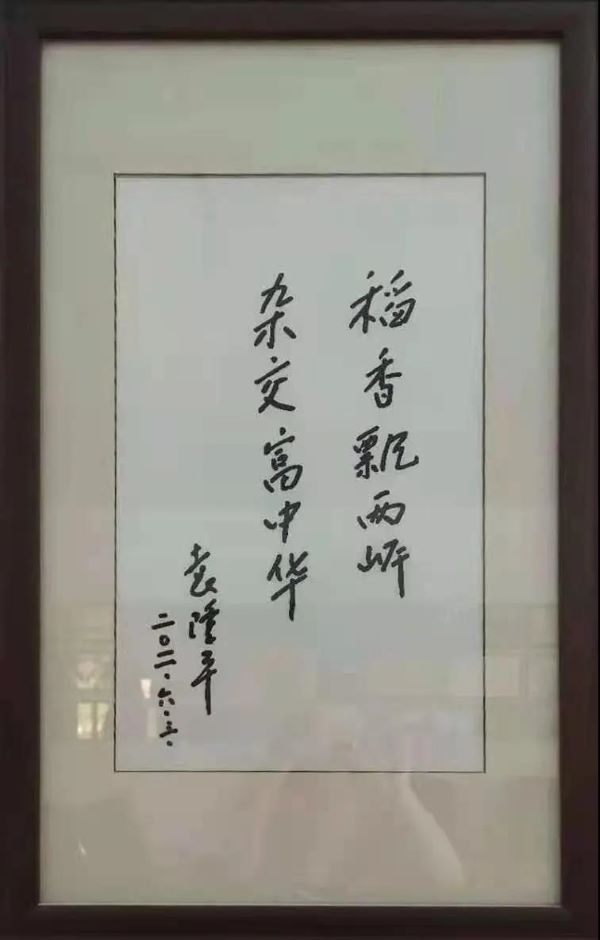 稻香飘两岸
杂交富中华
袁隆平
二〇一二.六.三.